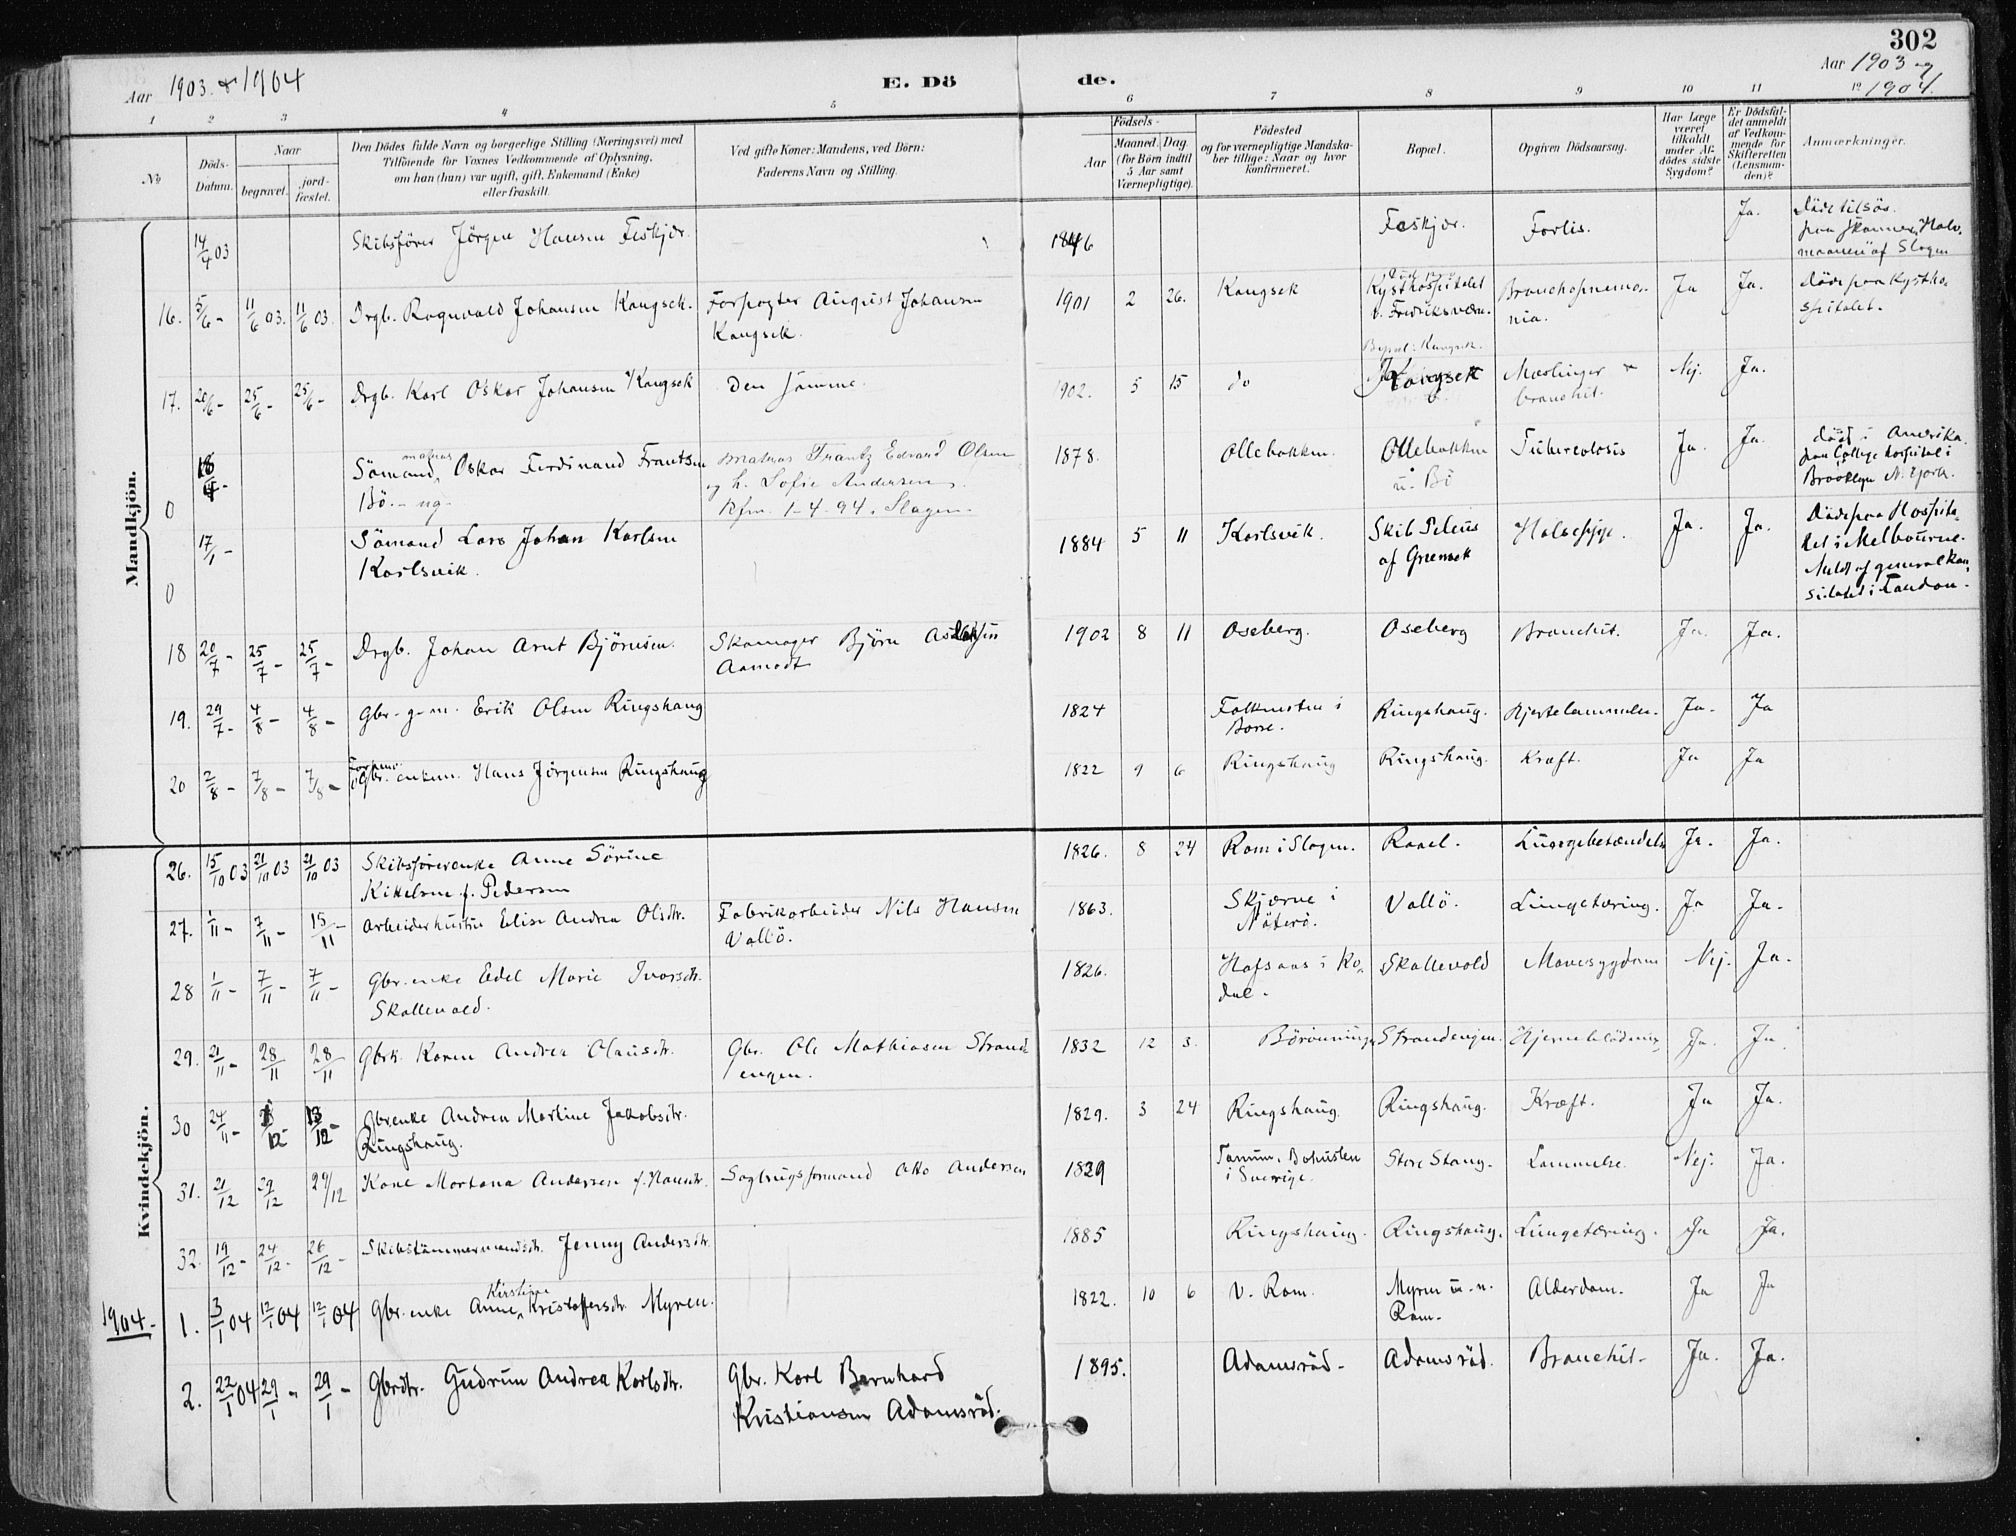 302
Aar 1903 & 1904
E. Dö
de.
Aar 1903 og
1904.
1 2 3 4 5 6 7 8 9 10 11 12
No
Döds-
Datum.
Naar
begravet.
jord-
fæstet.
Den Dödes fulde Navn og borgerlige Stilling (Næringsvei) med
Tilföiende for Voxnes Vedkommende af Oplysning,
om han (hun) var ugift, gift, Enkemand (Enke)
eller fraskilt.
Ved gifte Koner: Mandens, ved Börn:
Faderens Navn og Stilling.
Födsels-
Aar
Maaned. Dag.
(for Börn indtil
5 Aar samt
Værnepligtige).
Födested
og for værnepligtige Mandska-
ber tillige: Naar og hvor
konfirmeret.
Bopæl.
Opgiven Dödsaarsag.
Har Læge
været
tilkaldt
under Af-
dödes sidste
Sygdom?
Er Dödsfal-
det anmeldt
af Vedkom-
mende for
Skifteretten
(Lensman-
den)?
Anmærkninger.
Mandkjön.
14/4 03 Skibsförer Jörgen Hansen Feskjær. 1846 Feskjær. Forlis. Ja. Döde tilsös
paa Skonner "Halv-
maanen" af Slagen
16. 5/6 - 11/6 03. 11/6 03. Drgb. Ragnvald Johansen Kongsek. Forpagter August Johansen
Kongsek. 1901 2 26. Kongsek Kysthospitalet
v. Fredriksværn. Bronchopnemo-
nia. Ja Ja. Döde paa Kystho-
spitalet.
17. 20/6 - 25/6 - 25/6 - Drgb. Karl Oskar Johansen Kongsek Den samme. 1902. 5 15 do Kongsek Mæslinger &
bronchit. Nej. Ja.
0 Sömand, matros Oskar Ferdinand Frantsen
Bö. - ug - Matros Frantz Edvard Olsen
og h. Sofie Andersen.
Kfm. 1-4-94. Slagen. 1878. Ollebakken. Ollebakken
u. Bö Tuberculosis Ja. Ja. död i Amerika
paa College Hospital i
Brooklyn N. York.
0 17/1 - Sömand Lars Johan Karlsen
Karlsvik. 1884 5 11 Karlsvik. Skib Peleus
af Greenock Halsesyge. Ja. Ja. Döde paa Hospita-
let i Melbourne.
Meldt af generalkon-
sulatet i London.
18 20/7 - 25/7 - 25/7 - Drgb. Johan Arnt Björnsen. Skomager Björn
Aamodt 1902 8 11 Oseberg. Oseberg Bronchit. Ja. Ja.
19. 29/7 - 4/8 - 4/8 - Gbr. g. m. Erik Olsen Ringshaug 1824 Falkensten i
Borre. Ringshaug. Hjertelammelse. Ja. Ja
20 2/8 - 7/8 - 7/8 - Forhenv.
Gbr. enkem. Hans Jörgensen Ringshaug 1822 9 6 Ringshaug Ringshaug. Kræft. Ja Ja
Kvindekjön.
26. 15/10 03 21/10 03 21/10 03 Skibsförerenke Anne Sörine
Kittelsen f. Pedersen 1826. 8 24 Rom i Slagen. Raael. Lungebetændelse Ja. Ja.
27. 1/11 - 7/11 - 15/11 - Arbeiderhustru Elise Andrea Olsdtr. Fabrikarbeider Nils Hansen
Vallö. 1863. Skjærve i
Nöterö. Vallö. Lungetæring. Ja Ja.
28 1/11 - 7/11 - 7/11 - Gbr. enke Edel Marie Ivarsdtr.
Skallevold. 1826. Hafsaas i Ko-
dal. Skallevold Mavesygdom Nej. Ja.
29. 21/11 - 28/11 28/11 Gbrk. Karen Andrea Olausdtr. Gbr. Ole Mathiasen Strand-
engen. 1832 12 3. Strandengen. Hjerneblödning Ja. Ja.
30 24/11 - Gbrenke Andrea Martine Jakobsdtr.
Ringshaug. 1829. 3 24 Ringshaug. Ringshaug. Kræft. Ja Ja.
31. 21/12 29/12 29/12 Kone Martana Andersen f. Hansdtr. Sagbrugsformand Otto Andersen 1829 Tanum, Bohuslen
i Sverrige. Store Stang. Lammelse. Nej. Ja.
32. 19/12 - 24/12 - 26/12 - Skibstömmermandsdtr. Jenny Andersdtr. 1885 Ringshaug. Ringshaug. Lungetæring. Ja Ja.
1904. 1. 3/1 04 12/1 04 12/1 04 Gbr. enke Anne Kirstine Kristoffersdtr. Myren. 1822. 10 6 V. Rom. Myren u. n.
Rom. Alderdom. Ja Ja
2. 22/1 04 29/1 - 29/1 - Gbrdtr. Gudrun Andrea Karlsdtr. Gbr. Karl Bernhard
Kristiansen Adamsröd. 1895. Adamsröd. Adamsröd. Bronchit. Ja. Ja.